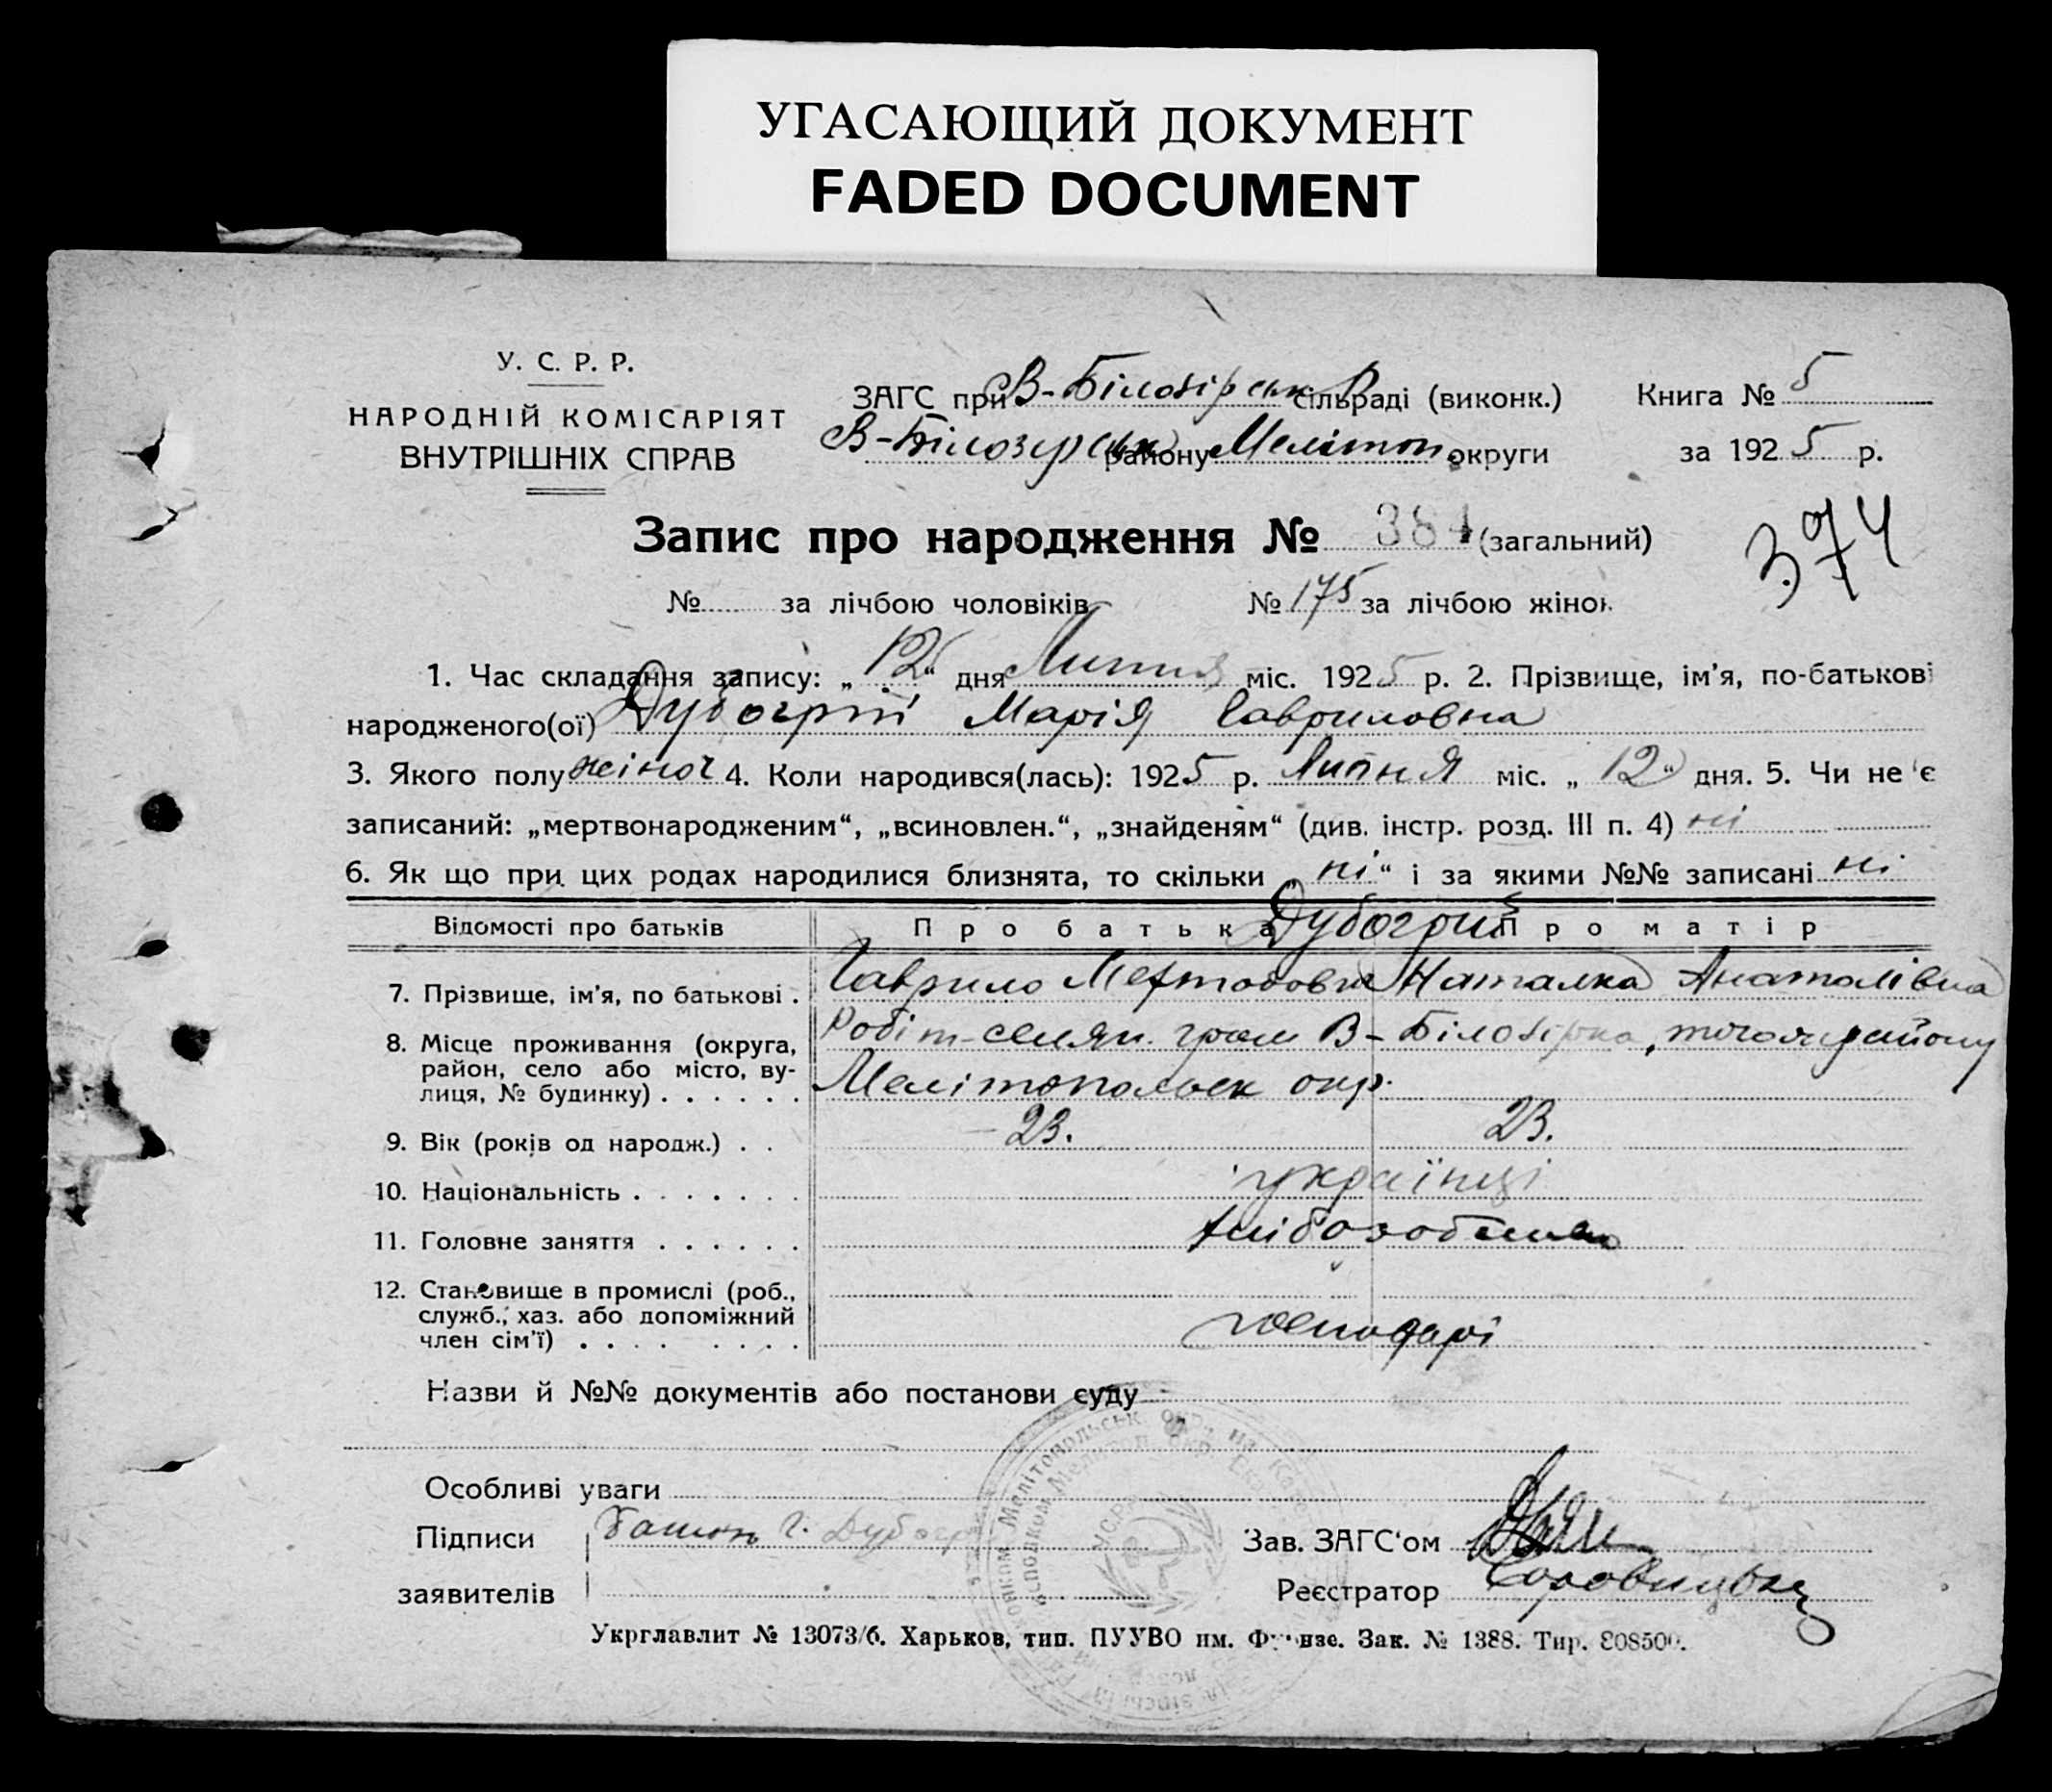 УГАСАЮЩИЙ ДОКУМЕНТ
FADED DOCUMENT
У. С. Р. Р.
НАРОДНІЙ КОМІСАРІЯТ
ВНУТРІШНІХ СПРАВ
ЗАГС при В-Білозірськ сільраді (виконк.)
В-Білозерськ району Мелітоп. округи
Книга № 5
за 1925 р.
Запис про народження № 384 (загальний)
374
№ за лічбою чоловіків № 175 за лічбою жінок
1. Час складання запису: „12“ дня Липня міс. 1925 р. 2. Прізвище, ім’я, по-батькові
народженого(ої) Дубогрій Марія Гавриловна
3. Якого полу жіноч 4. Коли народився(лась): 1925 р. Липня міс. „12“ дня. 5. Чи не є
записаний: „мертвонародженим“, „всиновлен.“, „знайденям“ (див. інстр. розд. III п. 4) ні
6. Як що при цих родах народилися близнята, то скільки „ні“ і за якими №№ записані ні
Відомості про батьків Про батька Дубогрій Про матір
7. Прізвище, ім’я, по батькові . Гаврило Мефтодович Наталка Анатолівна
8. Місце проживання (округа, Робіт-селян. гром В-Білозірка, того ж району
район, село або місто, ву-
лиця, № будинку) . . . . . . Мелітопольск окр.
9. Вік (років од народж.) . . 23. 23.
10. Національність . . . . . . . українці
11. Головне заняття . . . . . . хлібороб
12. Становище в промислі (роб.,
служб., хаз. або допоміжний
член сім’ї) . . . . . . . . господарі
Назви й №№ документів або постанови суду
Особливі уваги
Підписи Батько Г. Дубогр
Зав. ЗАГС‘ом
заявителів
Реєстратор
Укрглавлит № 13073/б. Харьков, тип. ПУУВО им. Фрунзе. Зак. № 1388. Тир. 808500.